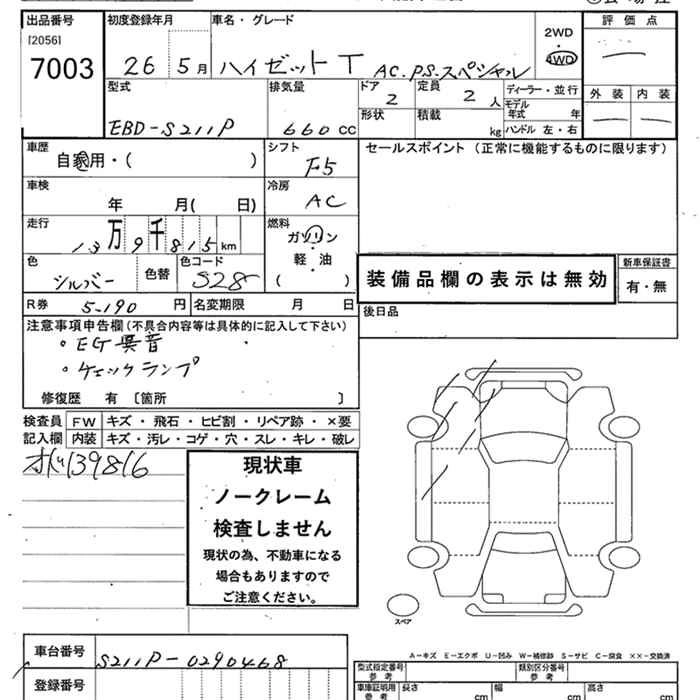 出品番号
[2056]
7003
初度登録年月
26 5月
車名・グレード
ハイゼットT AC.P.S.スペシャル
2WD
4WD
評価点
外装 内装
型式
EBD-S211P
排気量
660cc
ドア
2
定員
2人
形状
積載
kg
ディーラー・並行
モデル年式 年
ハンドル 左・右
車歴
自家用・( )
シフト
F5
セールスポイント (正常に機能するものに限ります)
車検
年 月( 日)
冷房
AC
走行
13万9千815km
燃料
ガソリン
軽油
( )
色
シルバー
色替
色コード
S28
装備品欄の表示は無効
新車保証書
有・無
R券 5-190円
名変期限 月 日
後日品
注意事項申告欄(不具合内容等は具体的に記入して下さい)
・EG異音
・チェックランプ
修復歴 有 〔箇所 〕
検査員記入欄
FW キズ・飛石・ヒビ割・リペア跡・×要
内装 キズ・汚レ・コゲ・穴・スレ・キレ・破レ
139816
現状車
ノークレーム
検査しません
現状の為、不動車になる
場合もありますので
ご注意ください。
スペア
A-キズ E-エクボ U-凹み W-補修跡 S-サビ C-腐食 ××-交換済
車台番号
S211P-0290468
登録番号
型式指定番号 参考
類別区分番号 参考
車庫証明用 参考
長さ cm
幅 cm
高さ cm